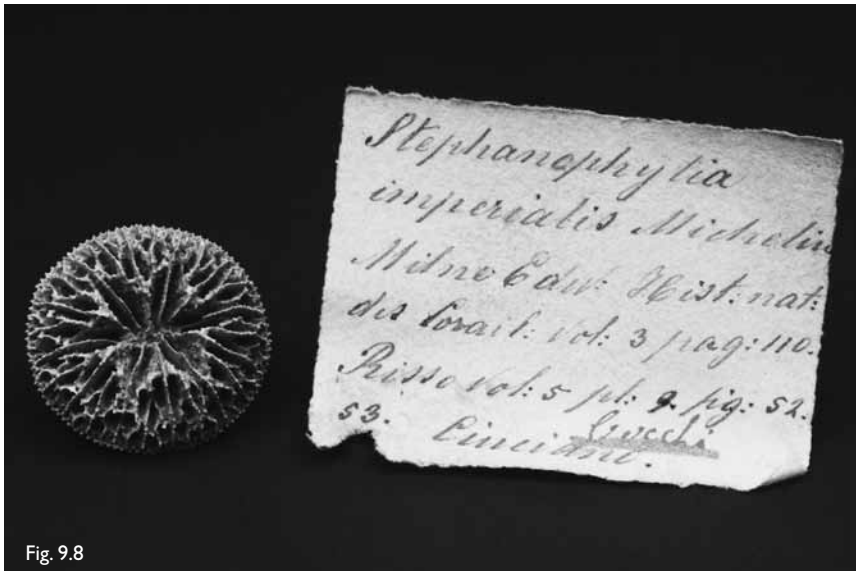 Stephanophylia
imperialis Michelin
Milne Edw: Hist: nat:
des Corail: vol: 3 pag: 110.
Risso vol: 5 pl: 9. fig: 52.
53. Cocchi
Cinciano.
Fig. 9.8